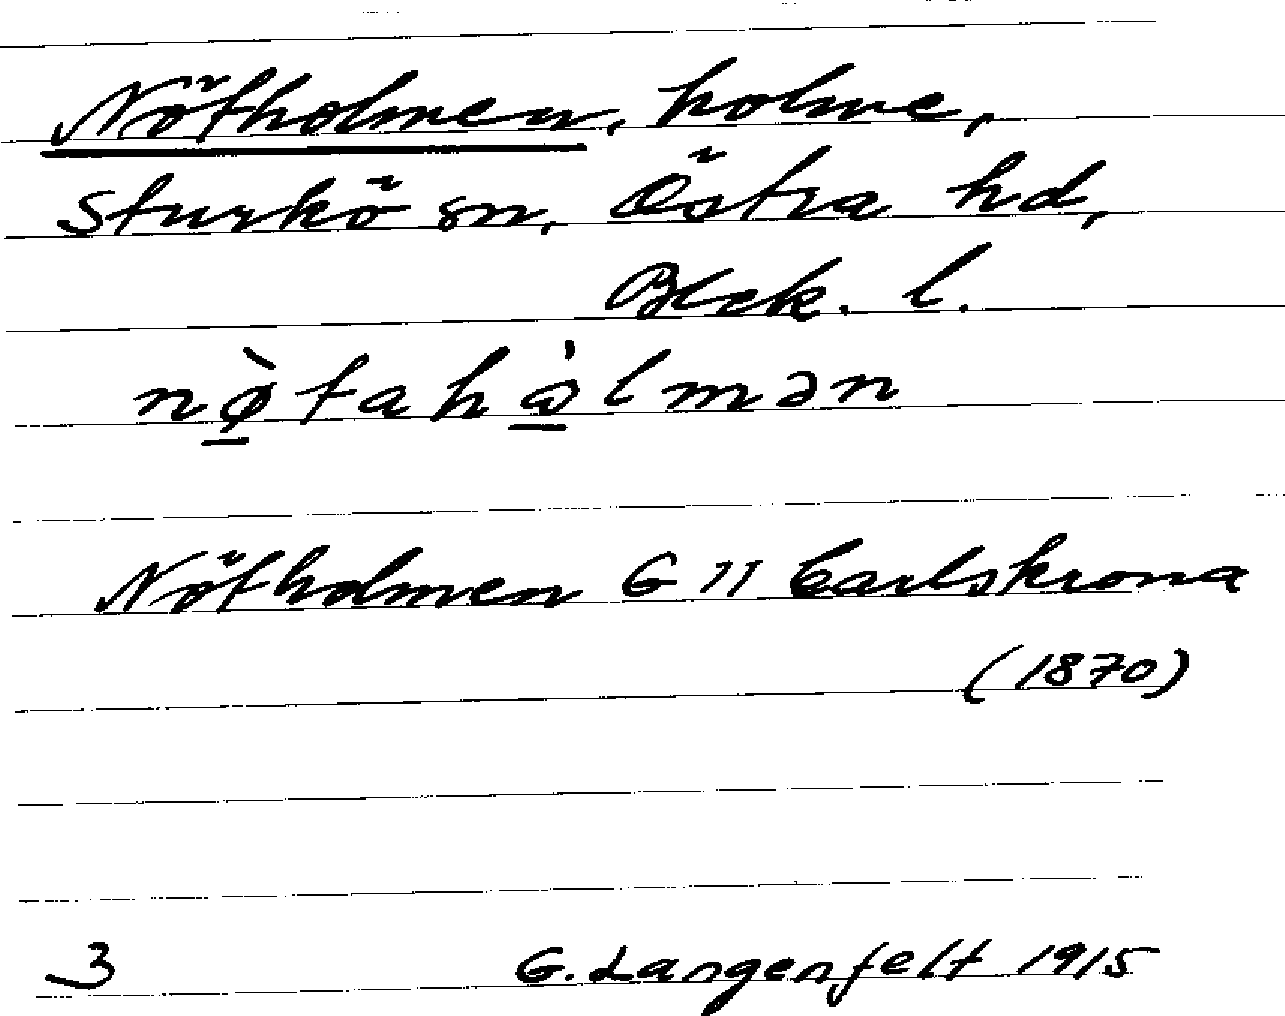 Nötholmen, holme,
Sturkö sn, Östra hd,
Blek. l.
nø̠̀tahὼ̠lmən
Nötholmen G II Carlskrona
(1870)
3 G. Langenfelt 1915